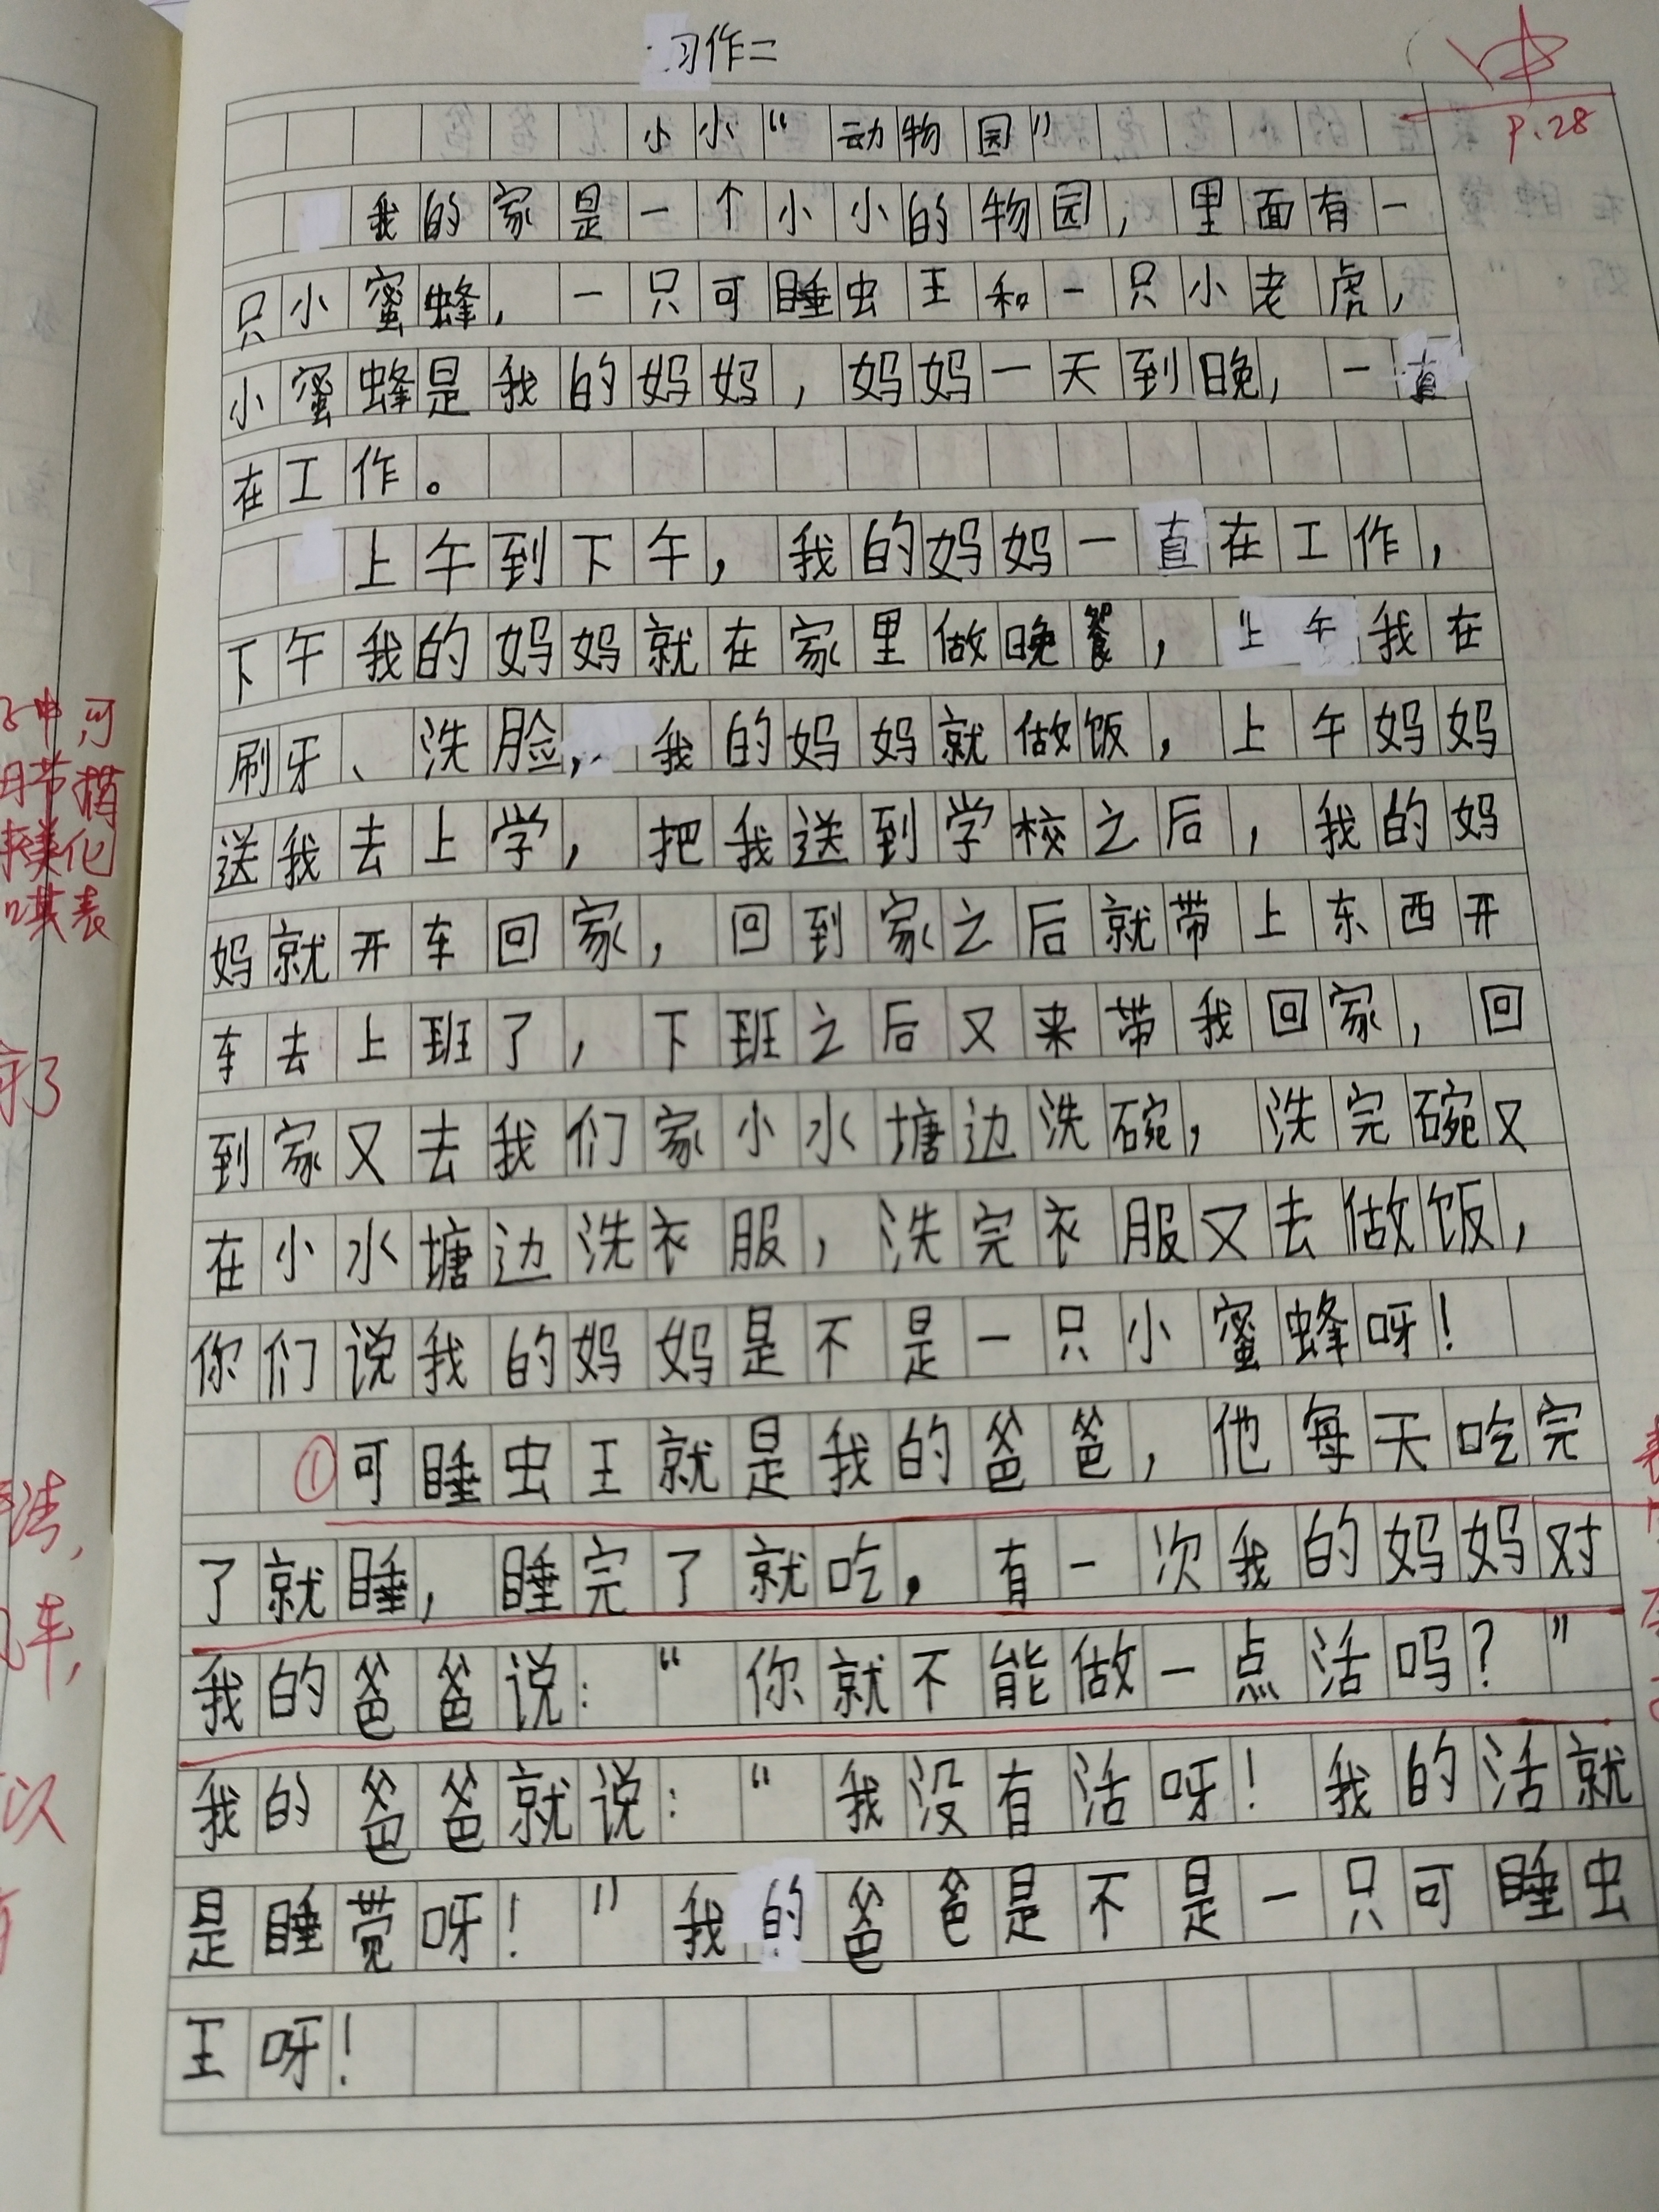 习作二
小小“动物园”
P.28
我的家是一个小小的物园，里面有一
只小蜜蜂，一只可睡虫王和一只小老虎，
小蜜蜂是我的妈妈，妈妈一天到晚，一直
在工作。
上午到下午，我的妈妈一直在工作，
下午我的妈妈就在家里做晚餐，上午我在
刷牙、洗脸，我的妈妈就做饭，上午妈妈
送我去上学，把我送到学校之后，我的妈
妈就开车回家，回到家之后就带上东西开
车去上班了，下班之后又来带我回家，回
到家又去我们家小水塘边洗碗，洗完碗又
在小水塘边洗衣服，洗完衣服又去做饭，
你们说我的妈妈是不是一只小蜜蜂呀！
①可睡虫王就是我的爸爸，他每天吃完
了就睡，睡完了就吃，有一次我的妈妈对
我的爸爸说：“你就不能做一点活吗？”
我的爸爸就说：“我没有活呀！我的活就
是睡觉呀！”我的爸爸是不是一只可睡虫
王呀！